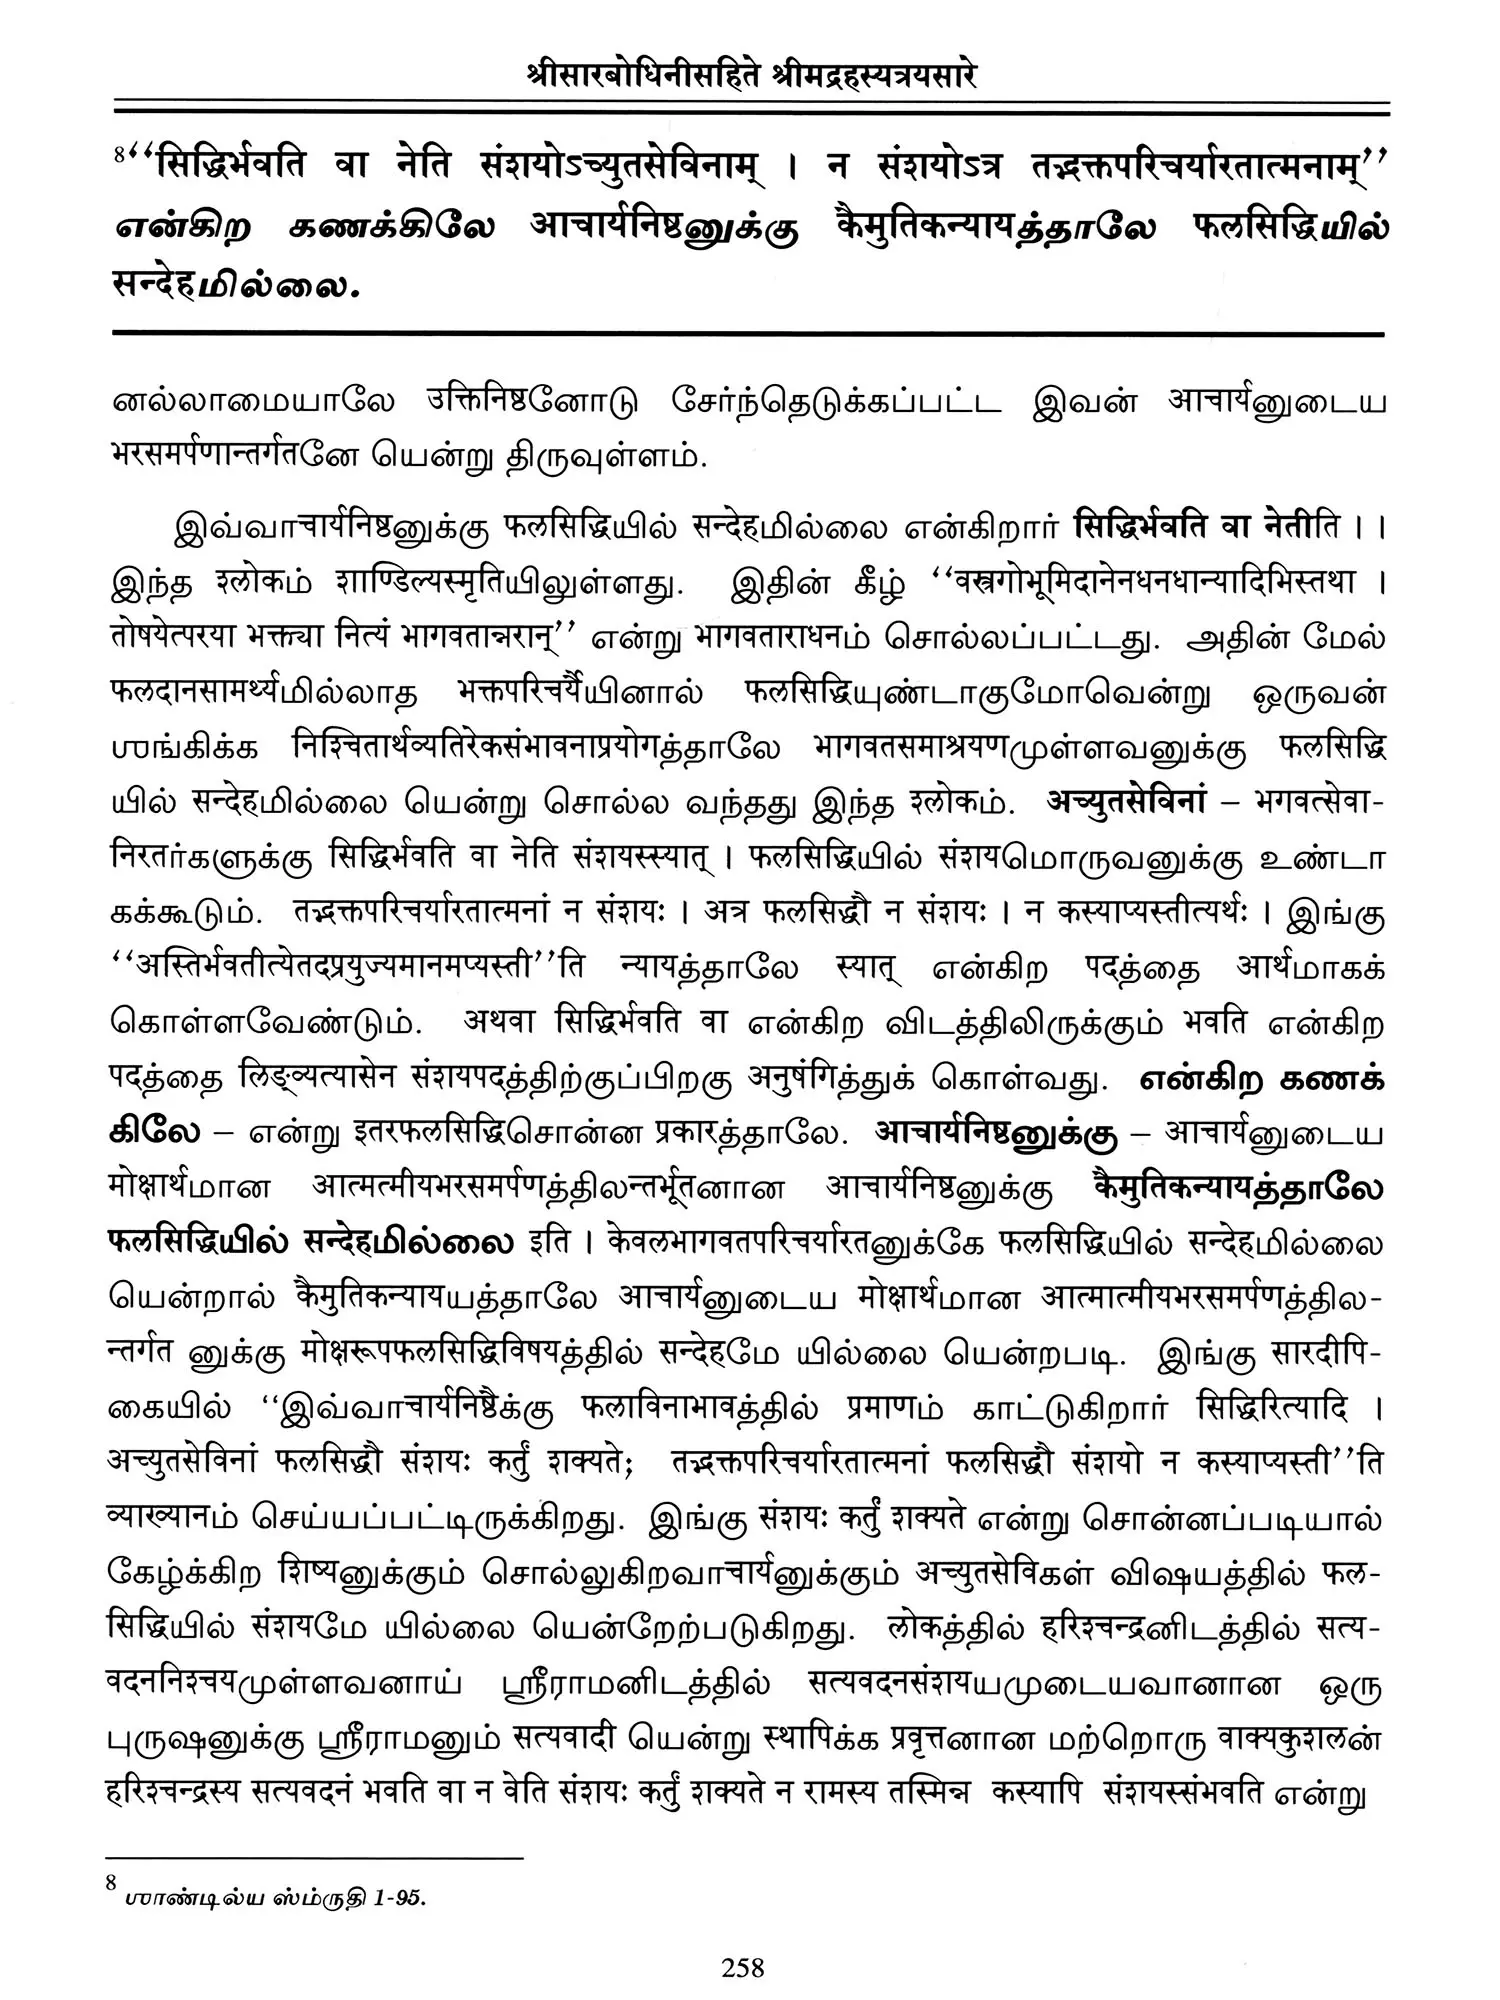 श्रीसारबोधिनीसहिते श्रीमद्रहस्यत्रयसारे
8“सिद्धिर्भवति वा नेति संशयोऽच्युतसेविनाम् । न संशयोऽत्र तद्भक्तपरिचर्यारतात्मनाम्”
என்கிற கணக்கிலே आचार्यनिष्ठனுக்கு कैमुतिकन्यायத்தாலே फलसिद्धिயில்
सन्देहமில்லை.
னல்லாமையாலே उक्तिनिष्ठனோடு சேர்ந்தெடுக்கப்பட்ட இவன் आचार्यனுடைய
भरसमर्पणान्तर्गतனே யென்று திருவுள்ளம்.
இவ்வாचार्यनिष्ठனுக்கு फलसिद्धिயில் सन्देहமில்லை என்கிறார் सिद्धिर्भवति वा नेतीति ।।
இந்த श्लोकம் शाण्डिल्यस्मृतिயிலுள்ளது. இதின் கீழ் “वस्त्रगोभूमिदानेनधनधान्यादिभिस्तथा ।
तोषयेत्परया भक्त्या नित्यं भागवतान्नरान्” என்று भागवताराधनம் சொல்லப்பட்டது. அதின் மேல்
फलदानसामर्थ्यமில்லாத भक्तपरिचर्यैயினால் फलसिद्धिயுண்டாகுமோவென்று ஒருவன்
ஶங்கிக்க निश्चितार्थव्यतिरेकसंभावनाप्रयोगத்தாலே भागवतसमाश्रयणமுள்ளவனுக்கு फलसिद्धि
யில் सन्देहமில்லை யென்று சொல்ல வந்தது இந்த श्लोकம். अच्युतसेविनां – भगवत्सेवा-
निरतர்களுக்கு सिद्धिर्भवति वा नेति संशयस्स्यात् । फलसिद्धिயில் संशयமொருவனுக்கு உண்டா
கக்கூடும். तद्भक्तपरिचर्यारतात्मनां न संशयः । अत्र फलसिद्धौ न संशयः । न कस्याप्यस्तीत्यर्थः । இங்கு
“अस्तिर्भवतीत्येतदप्रयुज्यमानमप्यस्ती”ति न्यायத்தாலே स्यात् என்கிற पदத்தை आर्थமாகக்
கொள்ளவேண்டும். अथवा सिद्धिर्भवति वा என்கிற விடத்திலிருக்கும் भवति என்கிற
पदத்தை लिङ्व्यत्यासेन संशयपदத்திற்குப்பிறகு अनुषंगिத்துக் கொள்வது. என்கிற கணக்
கிலே – என்று इतरफलसिद्धिசொன்ன प्रकारத்தாலே. आचार्यनिष्ठனுக்கு – आचार्यனுடைய
मोक्षार्थமான आत्मत्मीयभरसमर्पणத்திலन्तर्भूतனான आचार्यनिष्ठனுக்கு कैमुतिकन्यायத்தாலே
फलसिद्धिயில் सन्देहமில்லை इति । केवलभागवतपरिचर्यारतனுக்கே फलसिद्धिயில் सन्देहமில்லை
யென்றால் कैमुतिकन्यायயத்தாலே आचार्यனுடைய मोक्षार्थமான आत्मात्मीयभरसमर्पणத்தில-
न्तर्गत னுக்கு मोक्षरूपफलसिद्धिविषयத்தில் सन्देहமே யில்லை யென்றபடி. இங்கு सारदीपि-
கையில் “இவ்வாचार्यनिष्ठैக்கு फलाविनाभावத்தில் प्रमाणம் காட்டுகிறார் सिद्धिरित्यादि ।
अच्युतसेविनां फलसिद्धौ संशयः कर्तुं शक्यते; तद्भक्तपरिचर्यारतात्मनां फलसिद्धौ संशयो न कस्याप्यस्ती”ति
व्याख्यानம் செய்யப்பட்டிருக்கிறது. இங்கு संशयः कर्तुं शक्यते என்று சொன்னப்படியால்
கேழ்க்கிற शिष्यனுக்கும் சொல்லுகிறவாचार्यனுக்கும் अच्युतसेविகள் விஷயத்தில் फल-
सिद्धिயில் संशयமே யில்லை யென்றேற்படுகிறது. लोकத்தில் हरिश्चन्द्रனிடத்தில் सत्य-
वदननिश्चयமுள்ளவனாய் ஸ்ரீராமனிடத்தில் सत्यवदनसंशयயமுடையவானான ஒரு
புருஷனுக்கு ஸ்ரீராமனும் सत्यवादी யென்று स्थापिக்க प्रवृत्तனான மற்றொரு वाक्यकुशलன்
हरिश्चन्द्रस्य सत्यवदनं भवति वा न वेति संशयः कर्तुं शक्यते न रामस्य तस्मिन्न कस्यापि संशयस्संभवति என்று
8 ஶாண்டில்ய ஸ்ம்ருதி 1-95.
258